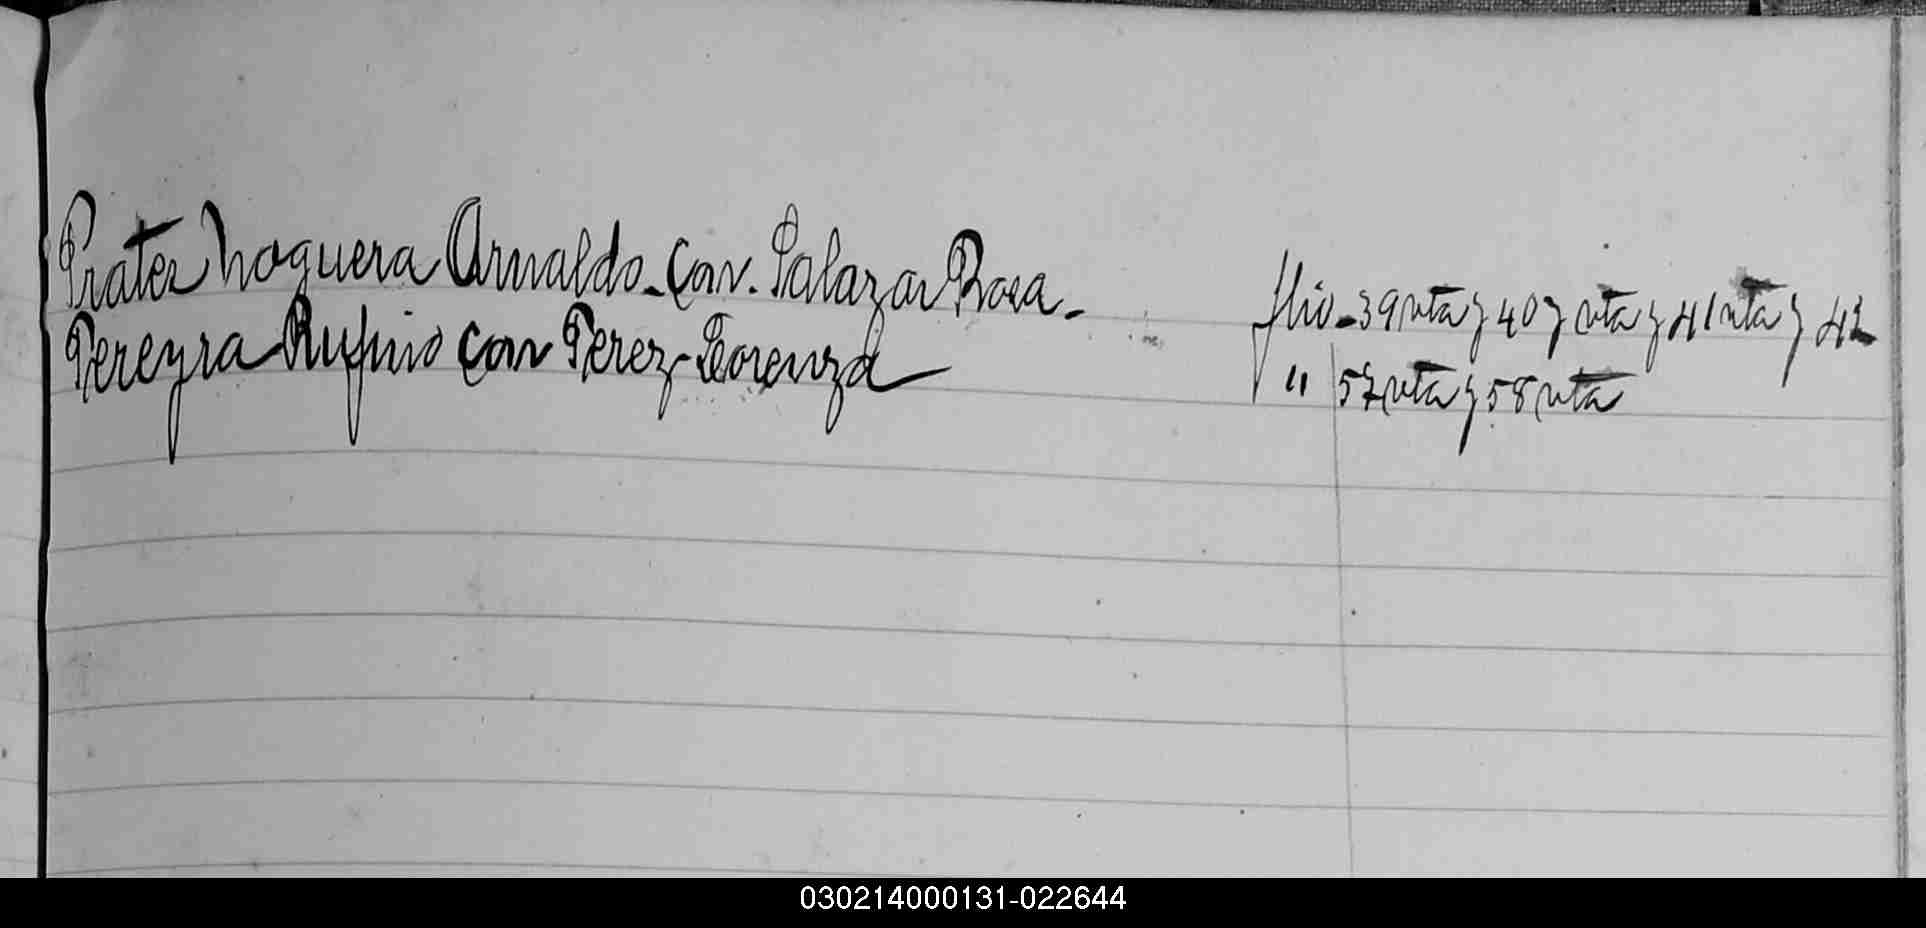 Prates Noguera Arnaldo - con. Salazar Rosa - flio - 39 vta y 40 y vta y 41 vta y 42
Pereyra Rufino con Perez - Lorenza " 57 vta y 58 vta
030214000131-022644